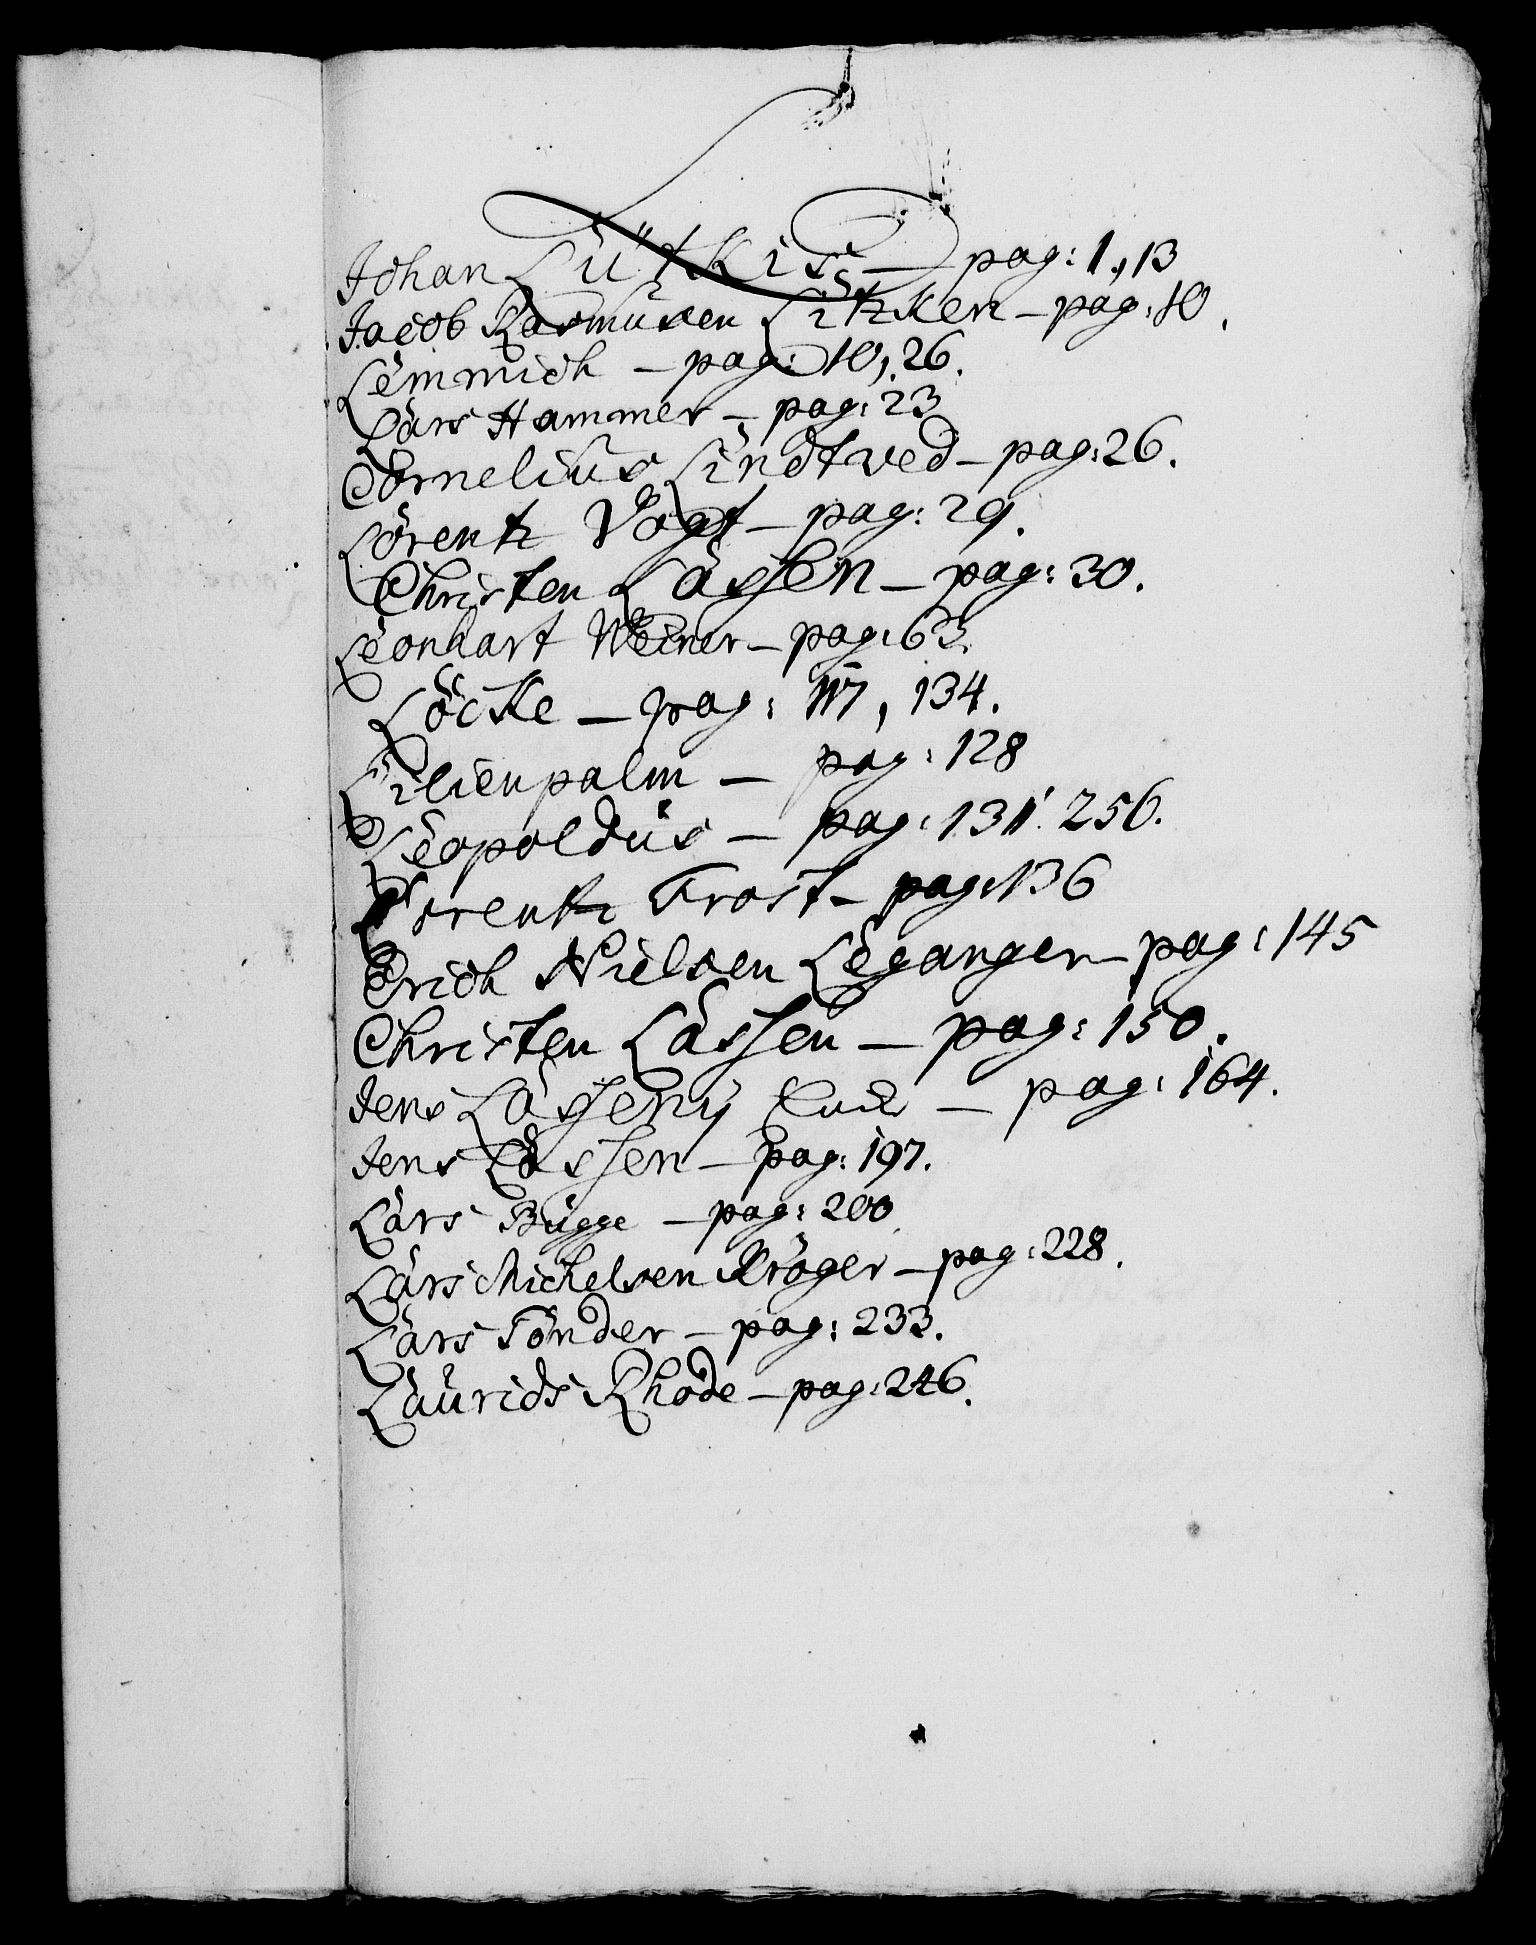 L
Johan Lütkis – pag: 1, 13
Jacob Rasmusen Litzken – pag: 10.
Lemmich – pag: 10, 26.
Lars Hammer – pag: 23
Cornelius Lindtved – pag: 26.
Lorentz Vogt – pag: 29.
Christen Lassen – pag: 30.
Leonhart Weiner – pag: 63.
Löcke – pag: 117, 134.
Lilienpalm – pag: 128
Leopoldus – pag: 131. 256.
Lorentz Frost – pag: 136
Erich Nielsen Leganger – pag: 145
Christen Lassen – pag: 150.
Jens Lasseny – pag: 164.
Jens Lassen – pag: 197.
Lars Bugge – pag: 200
Lars Michelsen Krøger – pag: 228.
Lars Tönder – pag: 233.
Laurids Rhode – pag: 246.